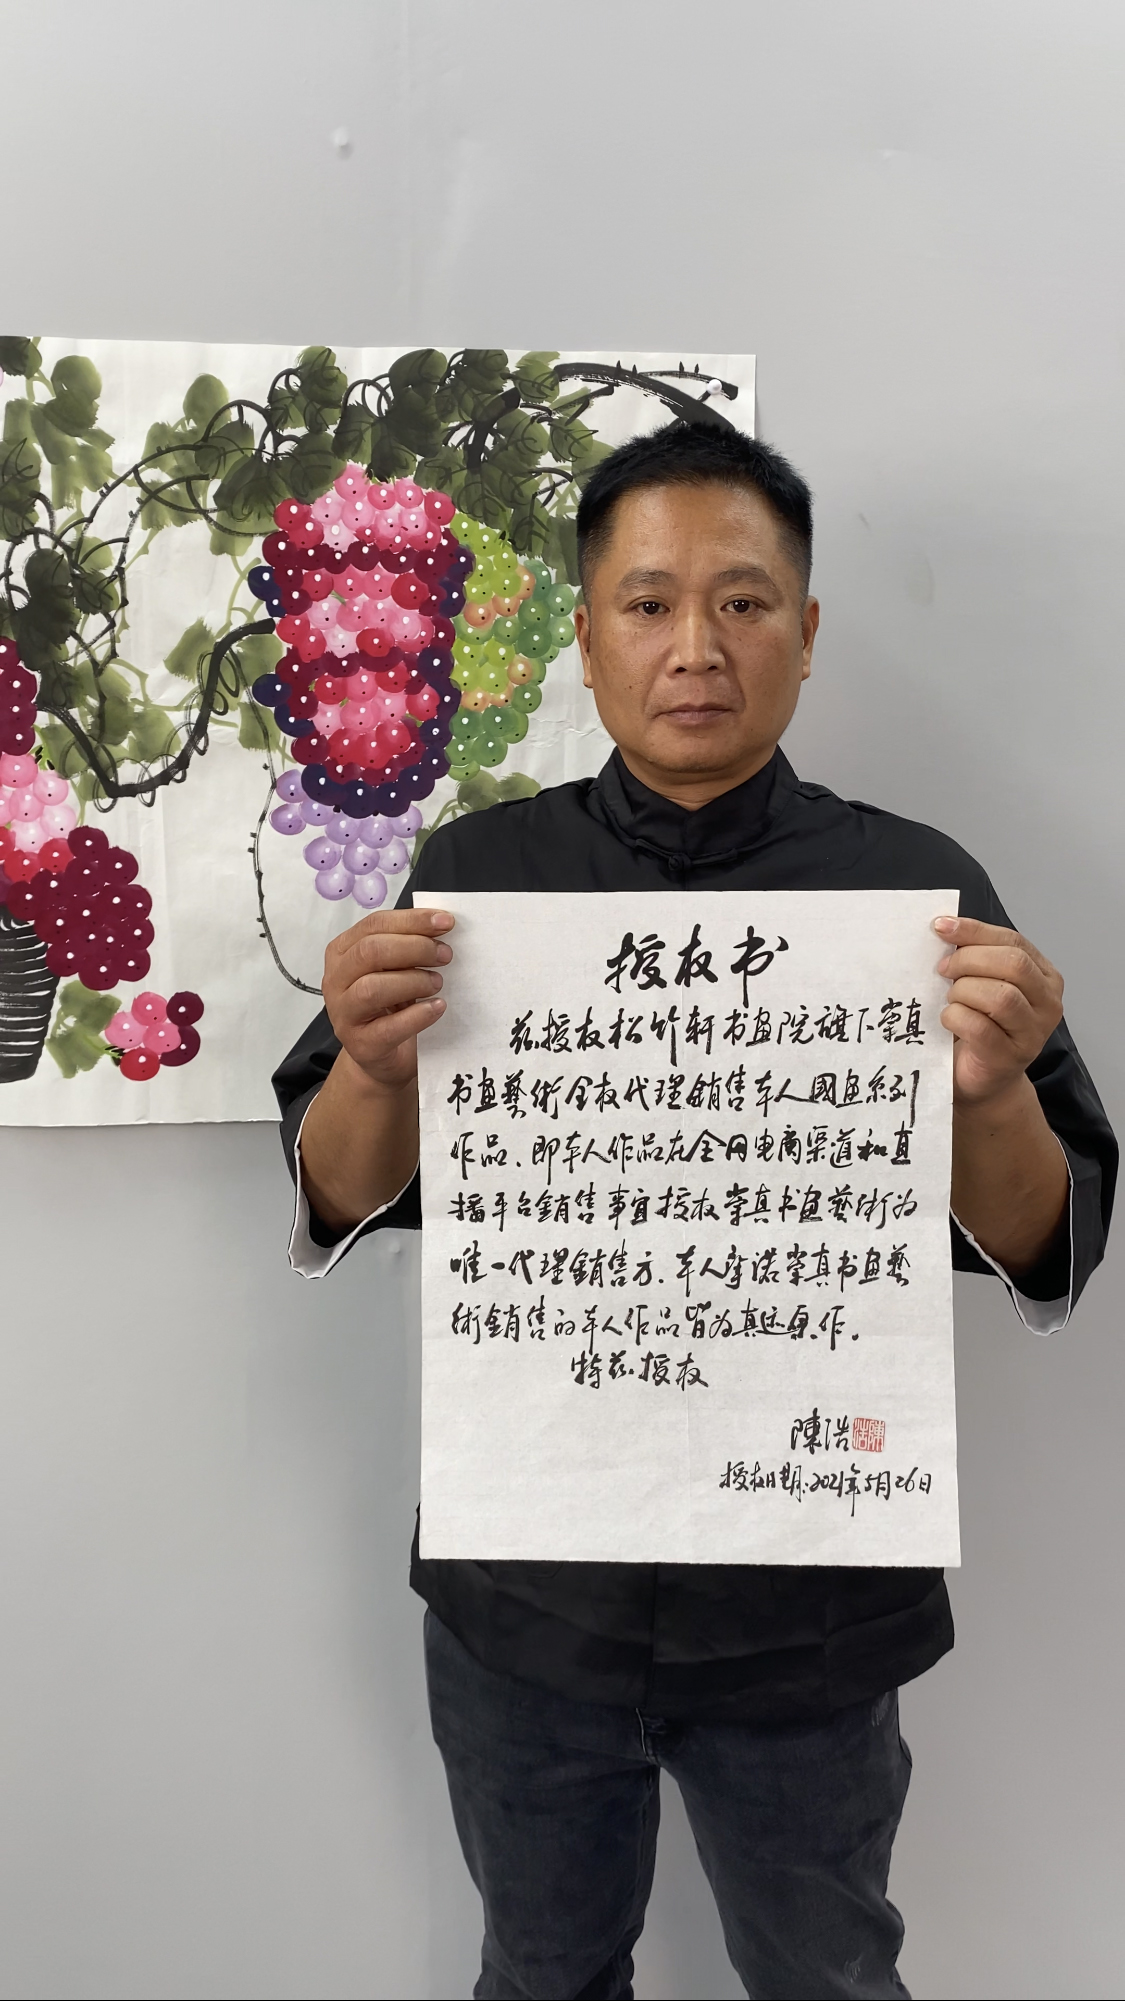 授权书
兹授权松竹轩书画院旗下崇真
书画藝術全权代理銷售本人國画系列
作品、即本人作品在全网电商渠道和直
播平台銷售事宜授权崇真书画藝術为
唯一代理銷售方.本人承诺崇真书画藝
術銷售的本人作品皆为真迹原作。
特兹授权
陳浩 陳浩
授权日期:2021年5月26日